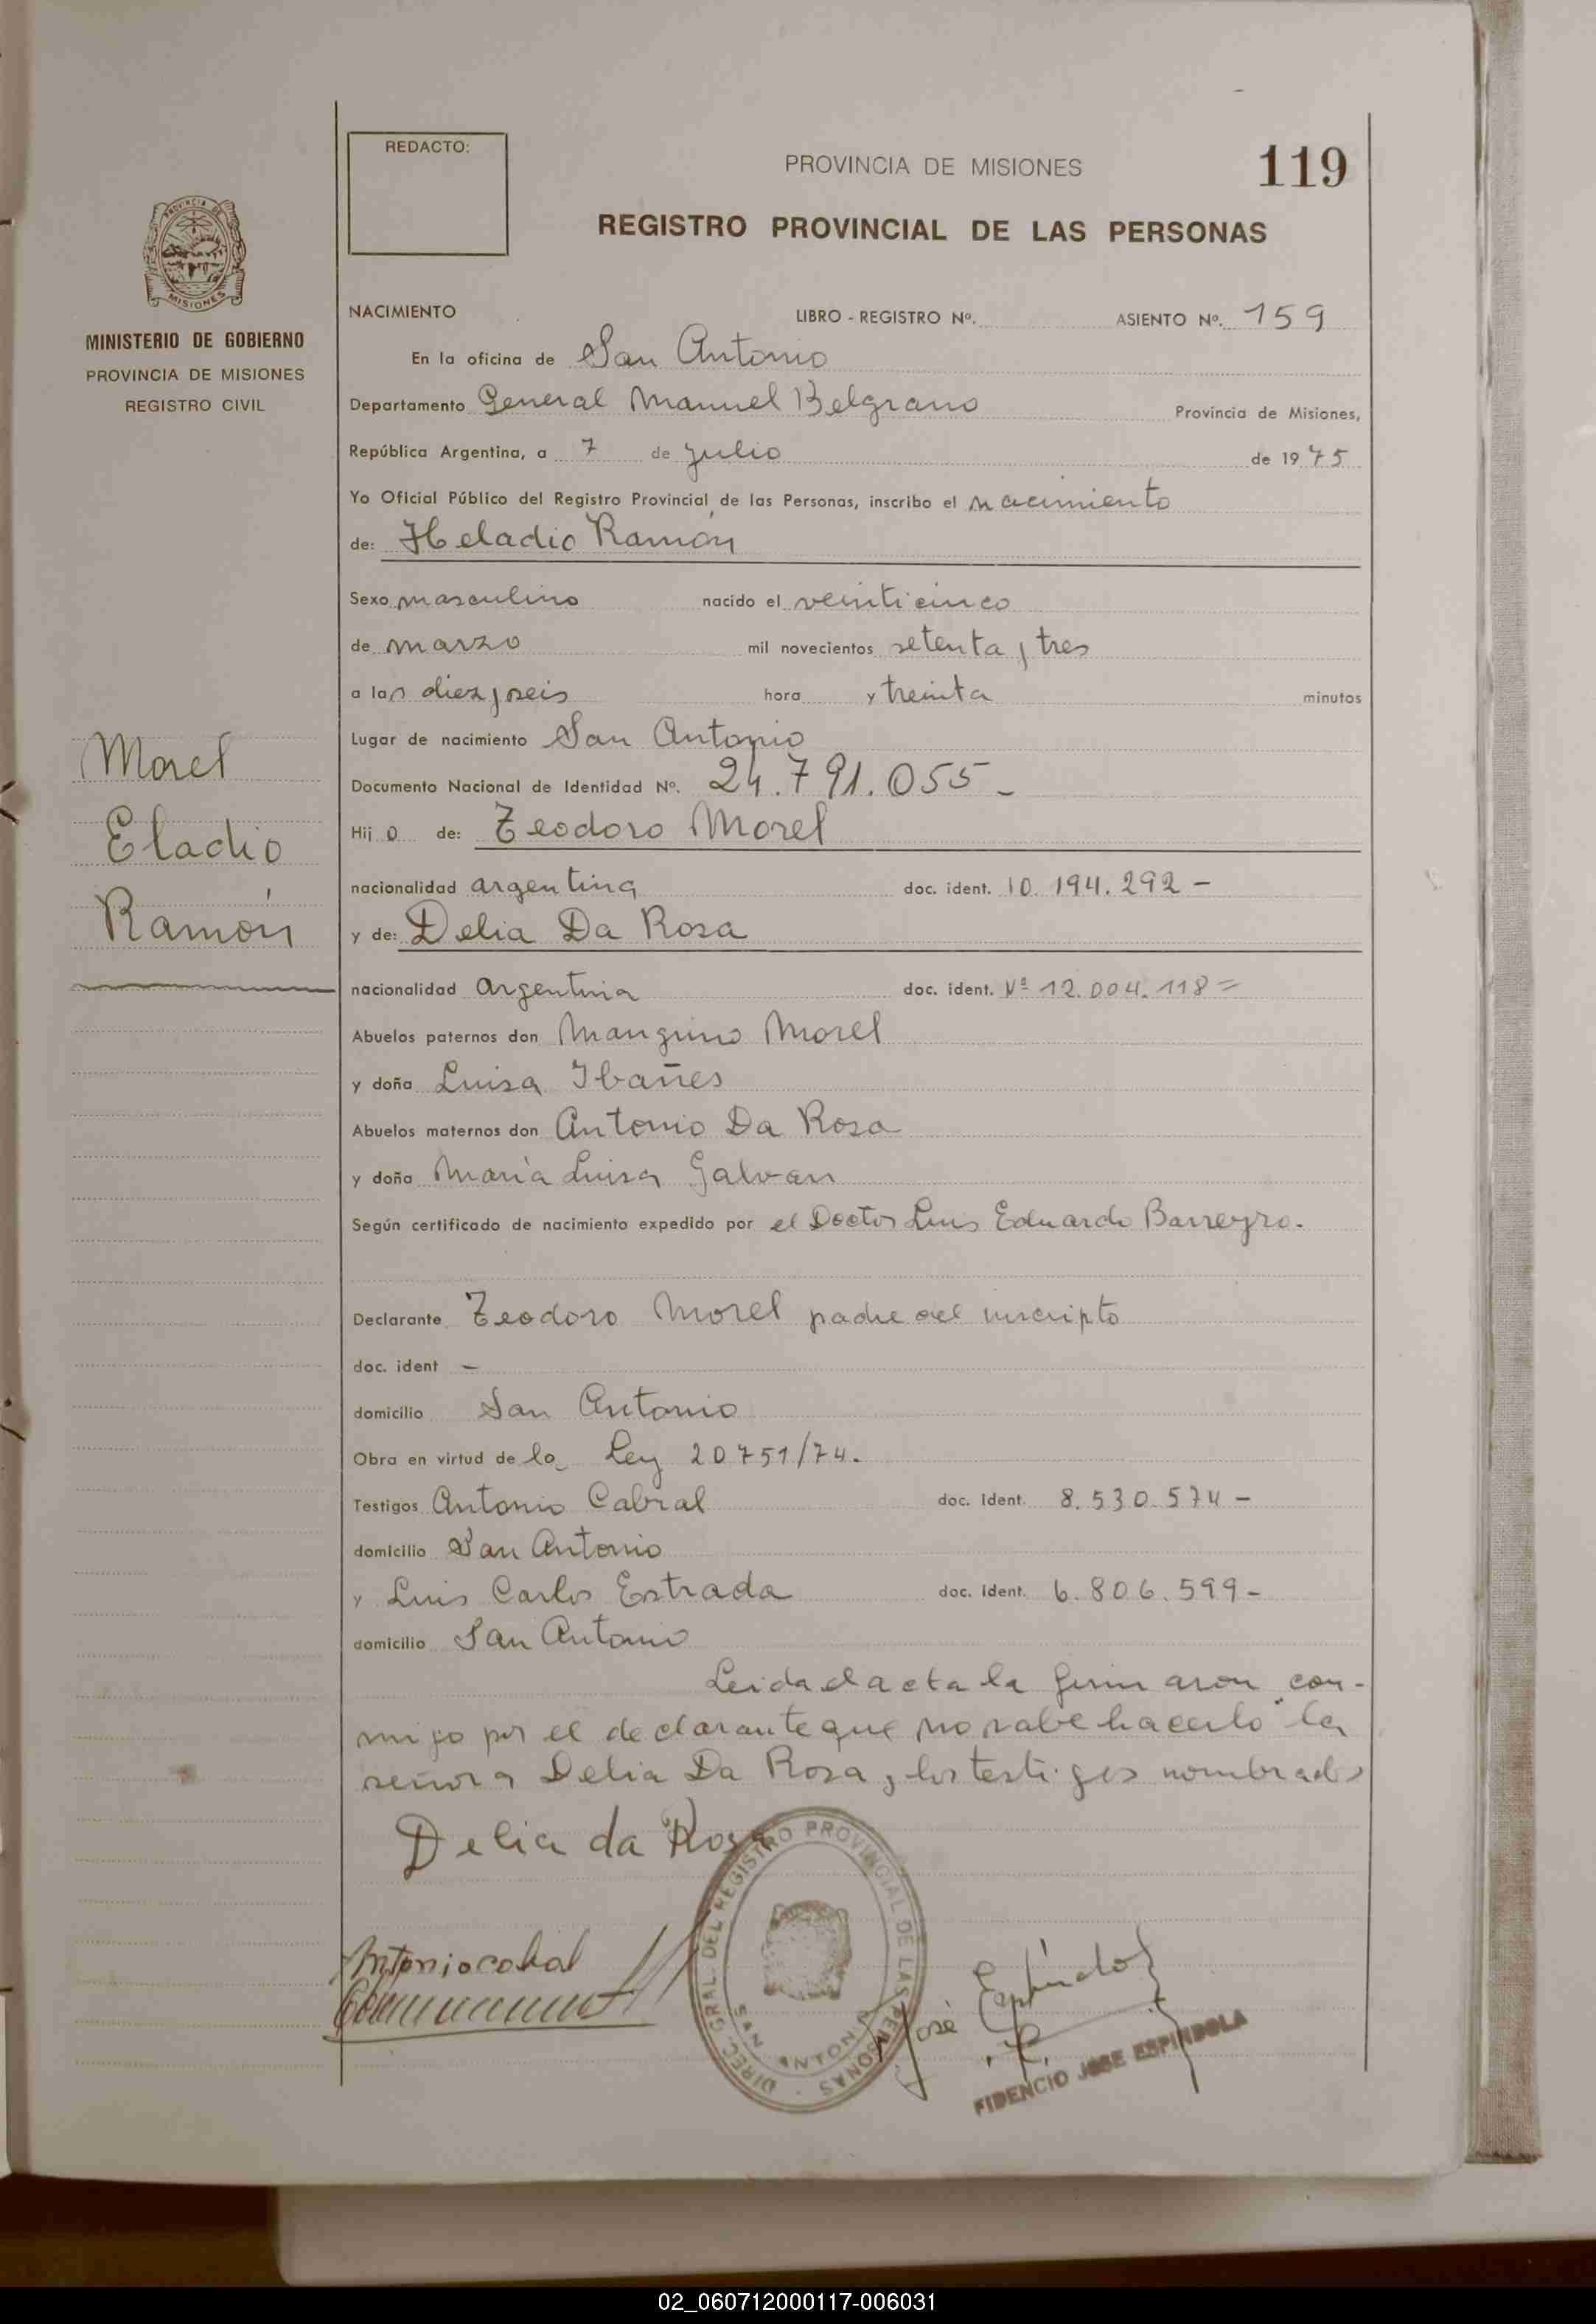 REDACTO:
PROVINCIA DE MISIONES
119
REGISTRO PROVINCIAL DE LAS PERSONAS
PROVINCIA DE
MISIONES
MINISTERIO DE GOBIERNO
PROVINCIA DE MISIONES
REGISTRO CIVIL
Morel
Eladio
Ramón
NACIMIENTO LIBRO - REGISTRO Nº. ASIENTO Nº. 159
En la oficina de San Antonio
Departamento General Manuel Belgrano Provincia de Misiones,
República Argentina, a 7 de julio de 1975
Yo Oficial Público del Registro Provincial de las Personas, inscribo el nacimiento
de: Heladio Ramón
Sexo masculino nacido el veinticinco
de marzo mil novecientos setenta y tres
a las diez y seis hora y treinta minutos
Lugar de nacimiento San Antonio
Documento Nacional de Identidad Nº. 24.791.055 -
Hij o de: Teodoro Morel
nacionalidad argentina doc. ident. 10.194.292 -
y de: Delia Da Rosa
nacionalidad Argentina doc. ident. Nº 12.004.118 =
Abuelos paternos don Morel
y doña Luisa Ibañes
Abuelos maternos don Antonio Da Rosa
y doña María Luisa Galvan
Según certificado de nacimiento expedido por el Doctor Luis Eduardo Barreyro.
Declarante Teodoro Morel padre del inscripto
doc. ident -
domicilio San Antonio
Obra en virtud de la Ley 20751/74.
Testigos Antonio Cabral doc. Ident. 8.530.574 -
domicilio San Antonio
y Luis Carlos Estrada doc. Ident. 6.806.599 -
domicilio San Antonio
Leida el acta la firmaron con-
migo por el declarante que no sabe hacerlo la
señora Delia Da Rosa y los testigos nombrados
Delia da Rosa
DIREC. GRAL. DEL REGISTRO PROVINCIAL DE LAS PERSONAS
SAN ANTONIO
José Espíndola
FIDENCIO JOSE ESPINDOLA
02_060712000117-006031